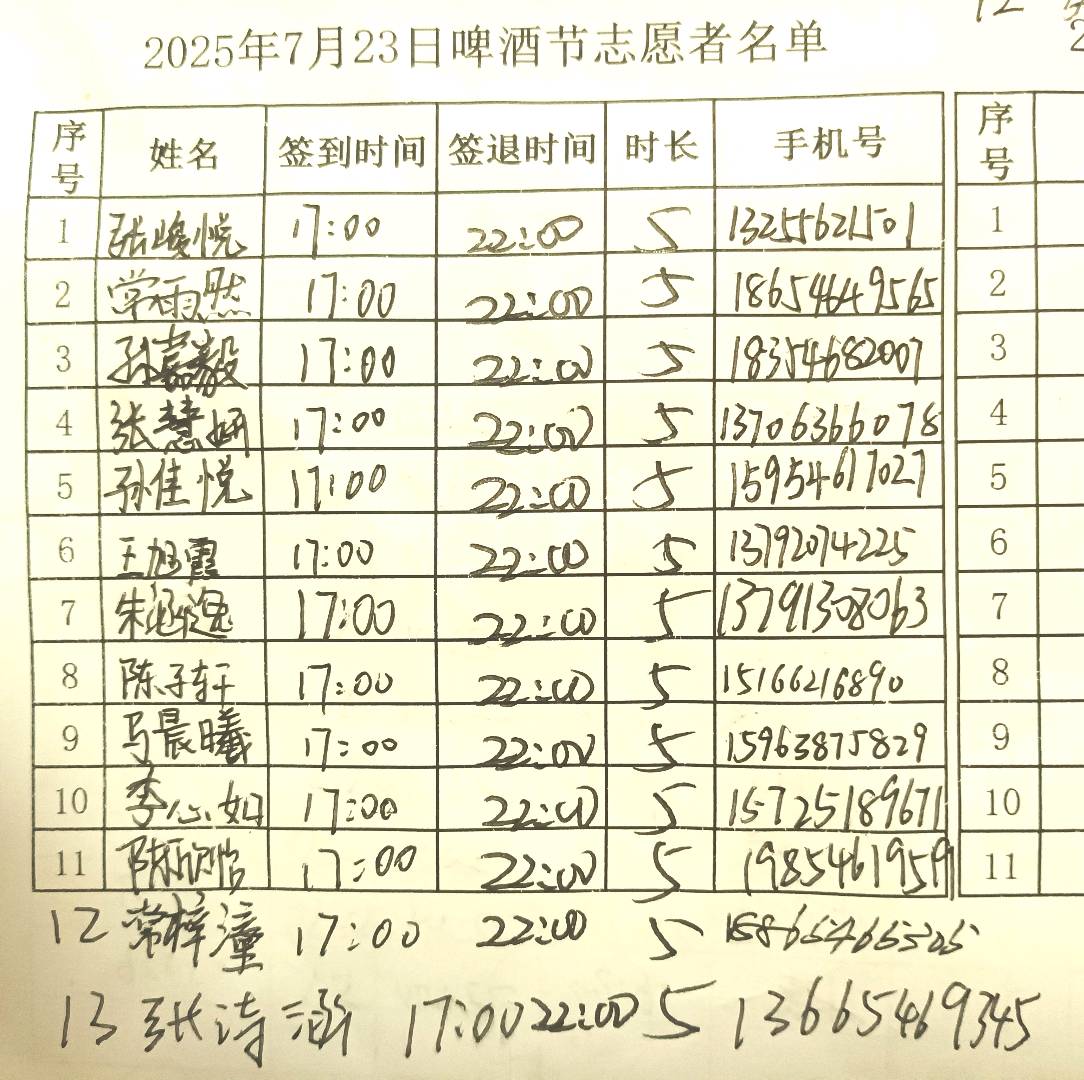 2025年7月23日啤酒节志愿者名单
序号 姓名 签到时间 签退时间 时长 手机号 序号
1 张峻悦 17:00 22:00 5 13255621501 1
2 常雨然 17:00 22:00 5 18654649565 2
3 孙嘉毅 17:00 22:00 5 18354682007 3
4 张慧妍 17:00 22:00 5 13706366078 4
5 孙佳悦 17:00 22:00 5 15954617027 5
6 王旭霞 17:00 22:00 5 13792074225 6
7 朱涵逸 17:00 22:00 5 13791308063 7
8 陈子轩 17:00 22:00 5 15166216890 8
9 马晨曦 17:00 22:00 5 15963875829 9
10 李心如 17:00 22:00 5 15725189671 10
11 陈欣怡 17:00 22:00 5 19854619591 11
12 常梓潼 17:00 22:00 5 15865465505
13 张涛涵 17:00 22:00 5 13665469345